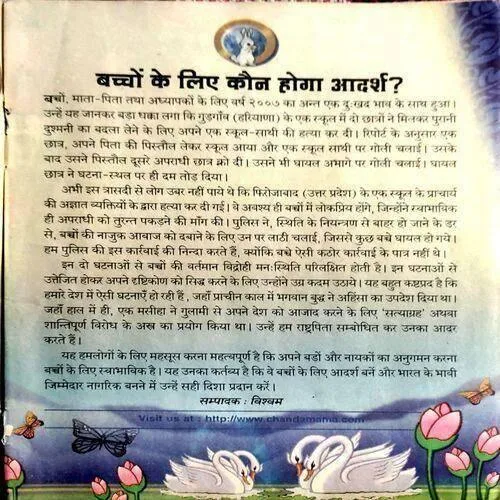 बच्चों के लिए कौन होगा आदर्श?
बच्चों, माता-पिता तथा अध्यापकों के लिए वर्ष २००७ का अन्त एक दुःखद भाव के साथ हुआ।
उन्हें यह जानकर बड़ा धक्का लगा कि गुड़गाँव (हरियाणा) के एक स्कूल में दो छात्रों ने मिलकर पुरानी
दुश्मनी का बदला लेने के लिए अपने एक स्कूल-साथी की हत्या कर दी। रिपोर्ट के अनुसार एक
छात्र, अपने पिता की पिस्तौल लेकर स्कूल आया और एक स्कूल साथी पर गोली चलाई। उसके
बाद उसने पिस्तौल दूसरे अपराधी छात्र को दी। उसने भी घायल अभागे पर गोली चलाई। घायल
छात्र ने घटना-स्थल पर ही दम तोड़ दिया।
अभी इस त्रासदी से लोग उबर नहीं पाये थे कि फिरोजाबाद (उत्तर प्रदेश) के एक स्कूल के प्राचार्य
की अज्ञात व्यक्तियों के द्वारा हत्या कर दी गई। वे अवश्य ही बच्चों में लोकप्रिय होंगे, जिन्होंने स्वाभाविक
ही अपराधी को तुरन्त पकड़ने की माँग की। पुलिस ने, स्थिति के नियन्त्रण से बाहर हो जाने के डर
से, बच्चों की नाजुक आवाज को दबाने के लिए उन पर लाठी चलाई, जिससे कुछ बच्चे घायल हो गये।
हम पुलिस की इस कार्रवाई की निन्दा करते हैं, क्योंकि बच्चे ऐसी कठोर कार्रवाई के पात्र नहीं थे।
इन दो घटनाओं से बच्चों की वर्तमान विद्रोही मनःस्थिति परिलक्षित होती है। इन घटनाओं से
उत्तेजित होकर अपने दृष्टिकोण को सिद्ध करने के लिए उन्होंने उग्र कदम उठाये। यह बहुत कष्टप्रद है कि
हमारे देश में ऐसी घटनाएँ हो रही हैं, जहाँ प्राचीन काल में भगवान बुद्ध ने अहिंसा का उपदेश दिया था।
जहाँ हाल में ही, एक मसीहा ने गुलामी से अपने देश को आजाद करने के लिए 'सत्याग्रह' अथवा
शान्तिपूर्ण विरोध के अस्त्र का प्रयोग किया था। उन्हें हम राष्ट्रपिता सम्बोधित कर उनका आदर
करते हैं।
यह हमलोगों के लिए महसूस करना महत्वपूर्ण है कि अपने बड़ों और नायकों का अनुगमन करना
बच्चों के लिए स्वाभाविक है। यह उनका कर्तव्य है कि वे बच्चों के लिए आदर्श बनें और भारत के भावी
जिम्मेदार नागरिक बनने में उन्हें सही दिशा प्रदान करें।
सम्पादक : विश्वम
Visit us at : http://www.chandamama.com